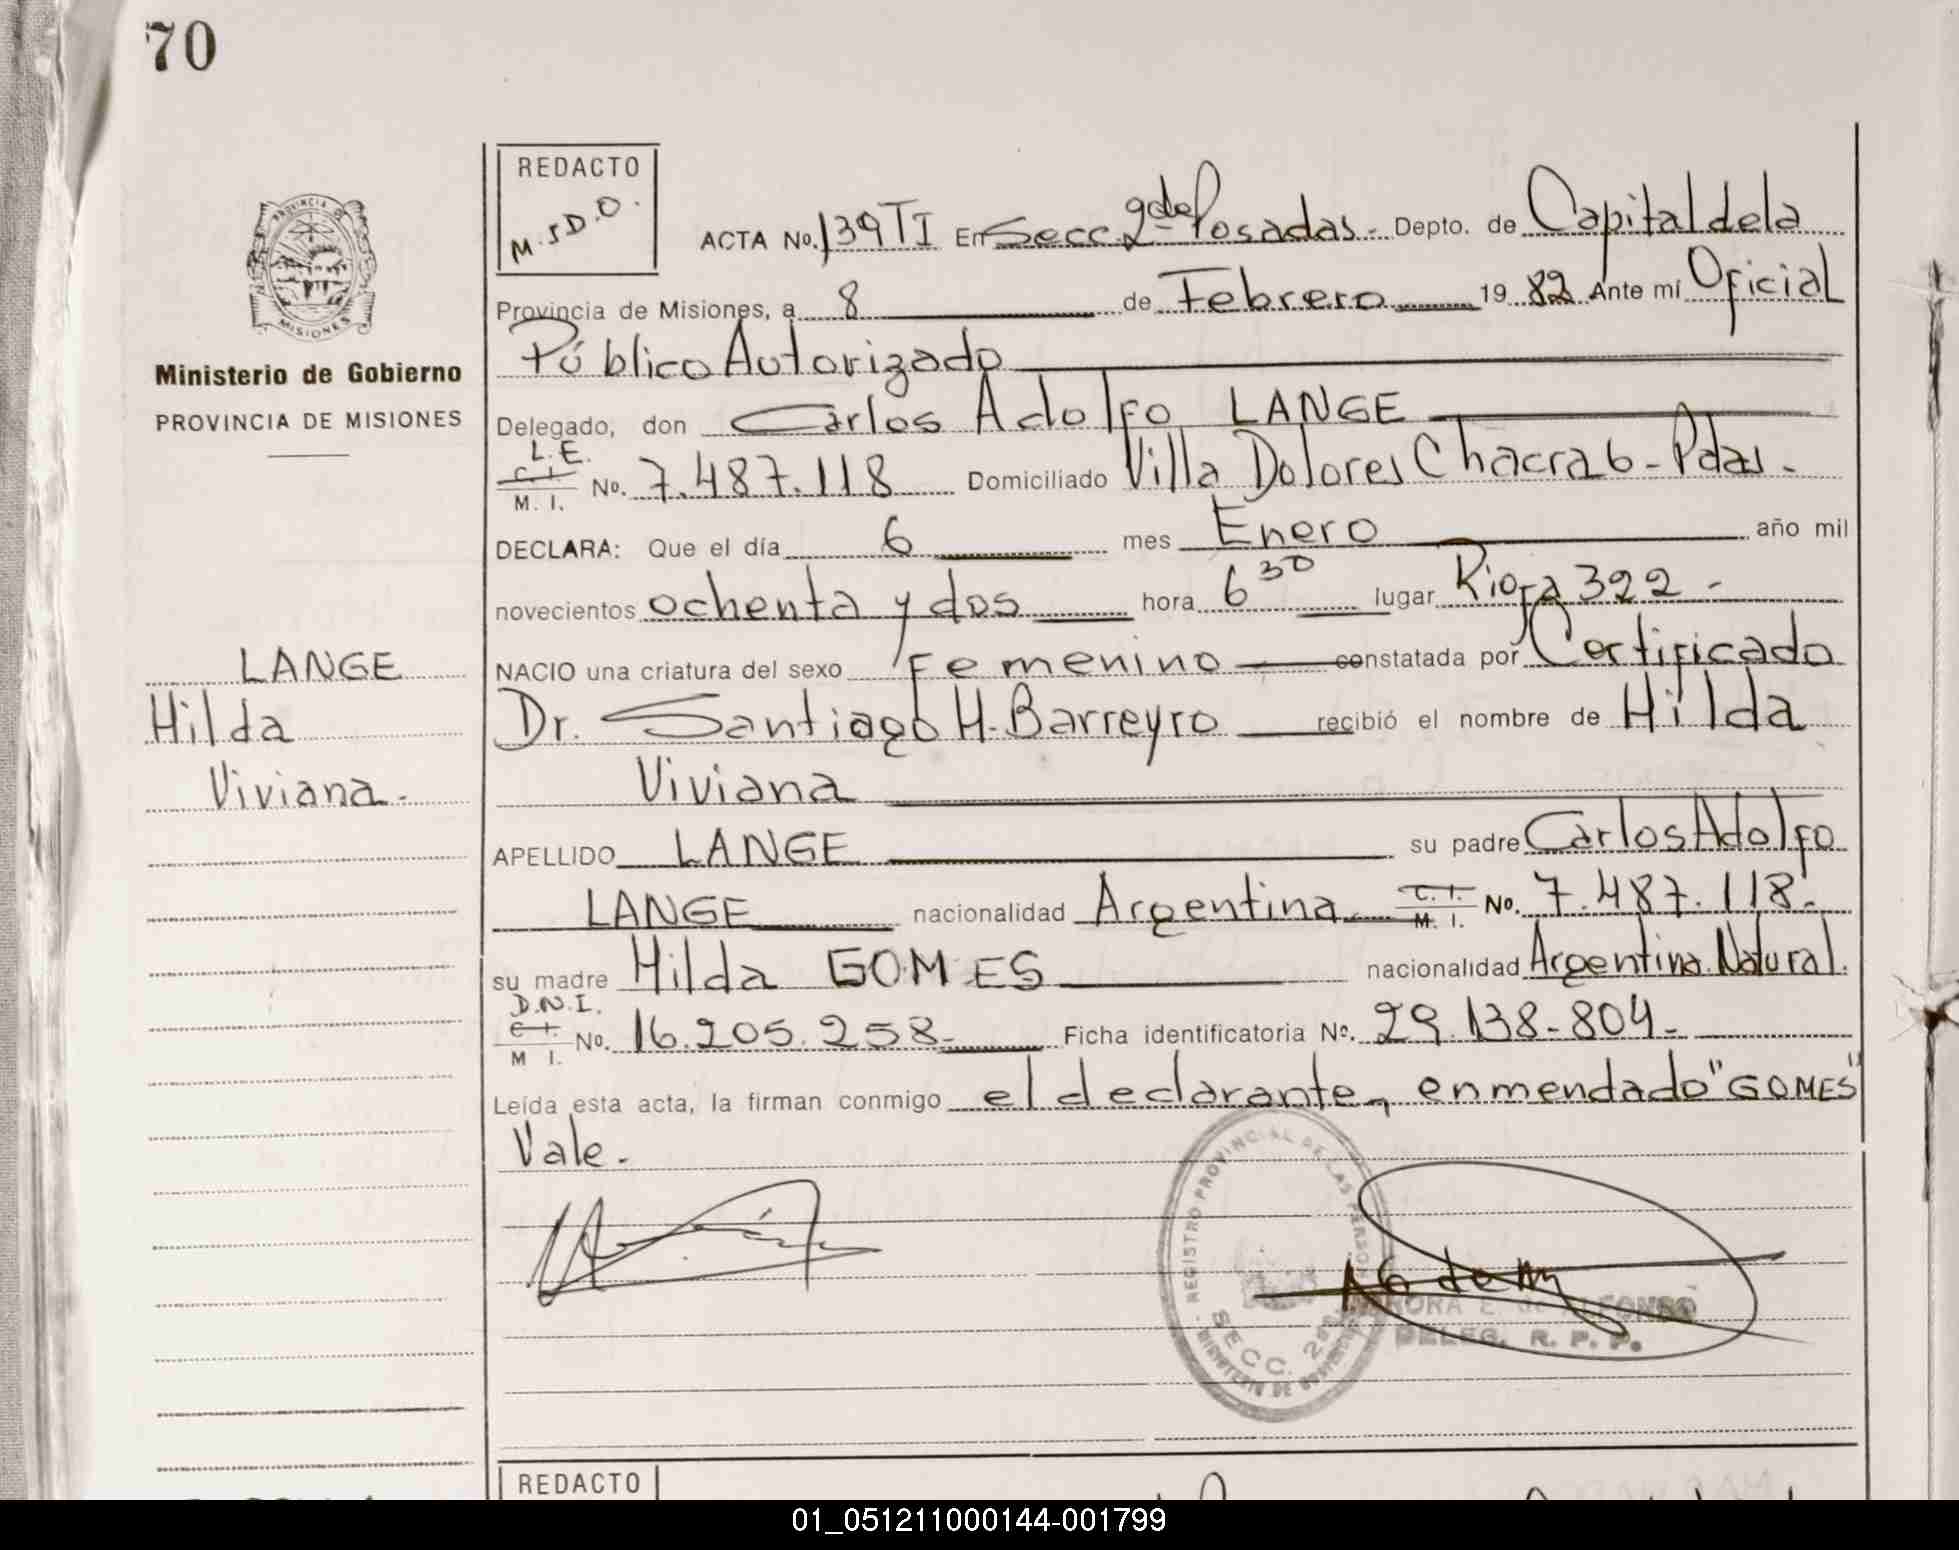 70
REDACTO
M.S.D.O.
ACTA No. 139 TI En Secc. 2da de Posadas.- Depto. de Capital de la
Provincia de Misiones, a 8 de Febrero 1982 Ante mí Oficial
Público Autorizado
Delegado, don Carlos Adolfo LANGE
L.E.
C. I.
M. I. No. 7.487.118 Domiciliado Villa Dolores Chacra 6 - Pdas.-
DECLARA: Que el día 6 mes Enero año mil
novecientos ochenta y dos hora 6 30 lugar Rioja 322 -
NACIO una criatura del sexo Femenino constatada por Certificado
Dr. Santiago H. Barreyro recibió el nombre de Hilda
Viviana
APELLIDO LANGE su padre Carlos Adolfo
LANGE nacionalidad Argentina C. I. M. I. No. 7.487.118.-
su madre Hilda GOMES nacionalidad Argentina. Natural.
D.N.I.
C. I.
M I. No. 16.205.258.- Ficha identificatoria No. 29.138-804-
Leída esta acta, la firman conmigo el declarante, enmendado "GOMES"
Vale.-
PROVINCIA DE
MISIONES
Ministerio de Gobierno
PROVINCIA DE MISIONES
LANGE
Hilda
Viviana.-
REGISTRO PROVINCIAL DE LAS PERSONAS
SECC. 2da
MINISTERIO DE GOBIERNO
E. de ALFONSO
DELEG. R. P. P.
REDACTO
01_051211000144-001799